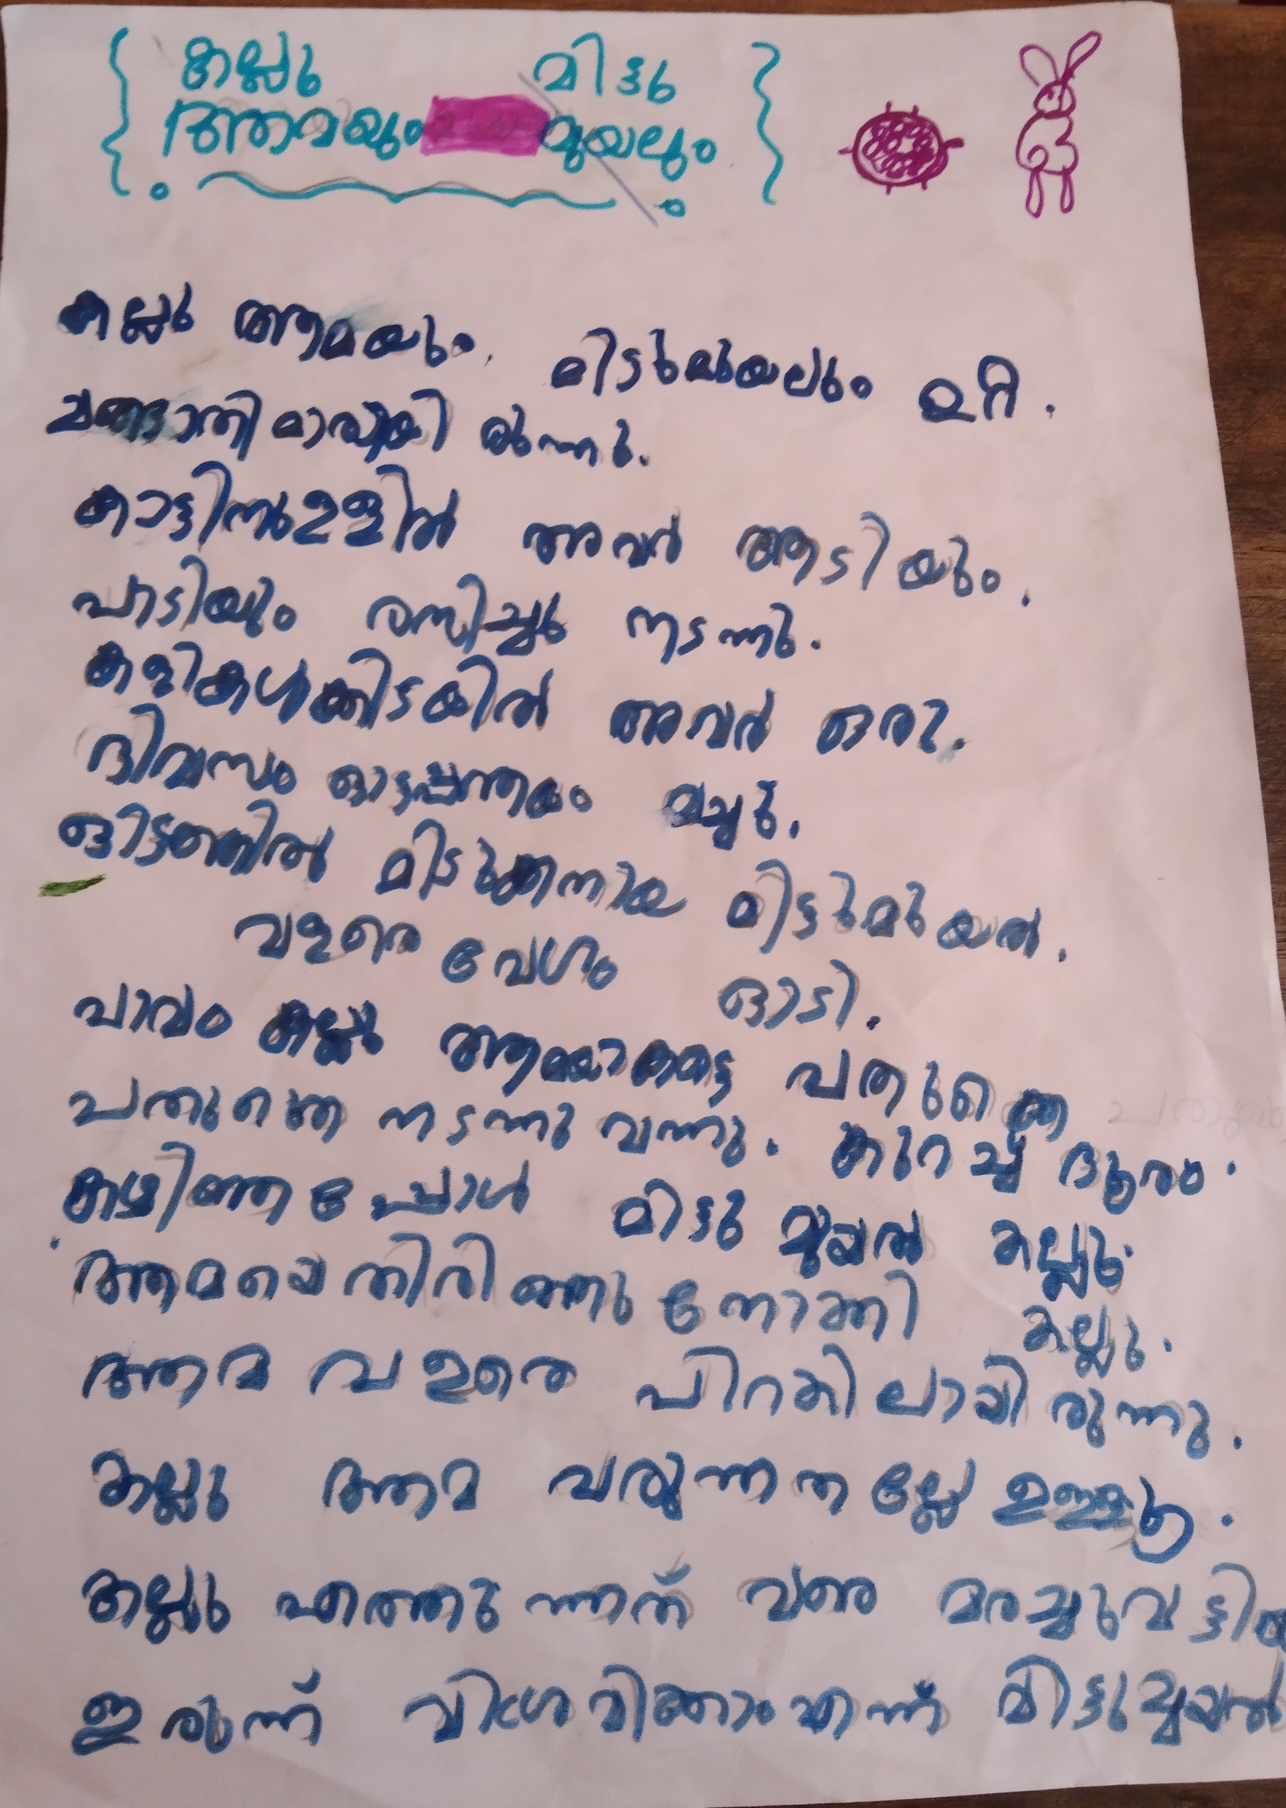 കല്ലു മിട്ടു
ആമയും മുയലും
കല്ലു ആമയും മിട്ടുമുയലും ഉറ്റ
ചങ്ങാതിമാരായി രുന്നു.
കാട്ടിനുള്ളിൽ അവർ ആടിയും.
പാടിയും രസിച്ചു നടന്നു.
കളികൾക്കിടയിൽ അവർ ഒരു.
ദിവസം ഓട്ടപ്പന്തയം വച്ചു.
ഓട്ടത്തിൽ മിടുക്കനായ മിട്ടുമുയൽ.
വളരെ വേഗം ഓടി.
പാവം കല്ലു ആമയാകട്ടെ പതുക്കെ
പതുക്കെ നടന്നു വന്നു. കുറച്ച് ദൂരം.
കഴിഞ്ഞപ്പോൾ മിട്ടു മുയൽ കല്ലു
ആമയെ തിരിഞ്ഞു നോക്കി കല്ലു.
ആമ വളരെ പിറകിലായി രുന്നു.
കല്ലു ആമ വരുന്നതല്ലേ ഉള്ളൂ.
കല്ലു എത്തുന്നത് വരെ മരച്ചുവട്ടിൽ
ഇരുന്ന് വിശ്രമിക്കാം എന്ന് മിട്ടുമുയൽ